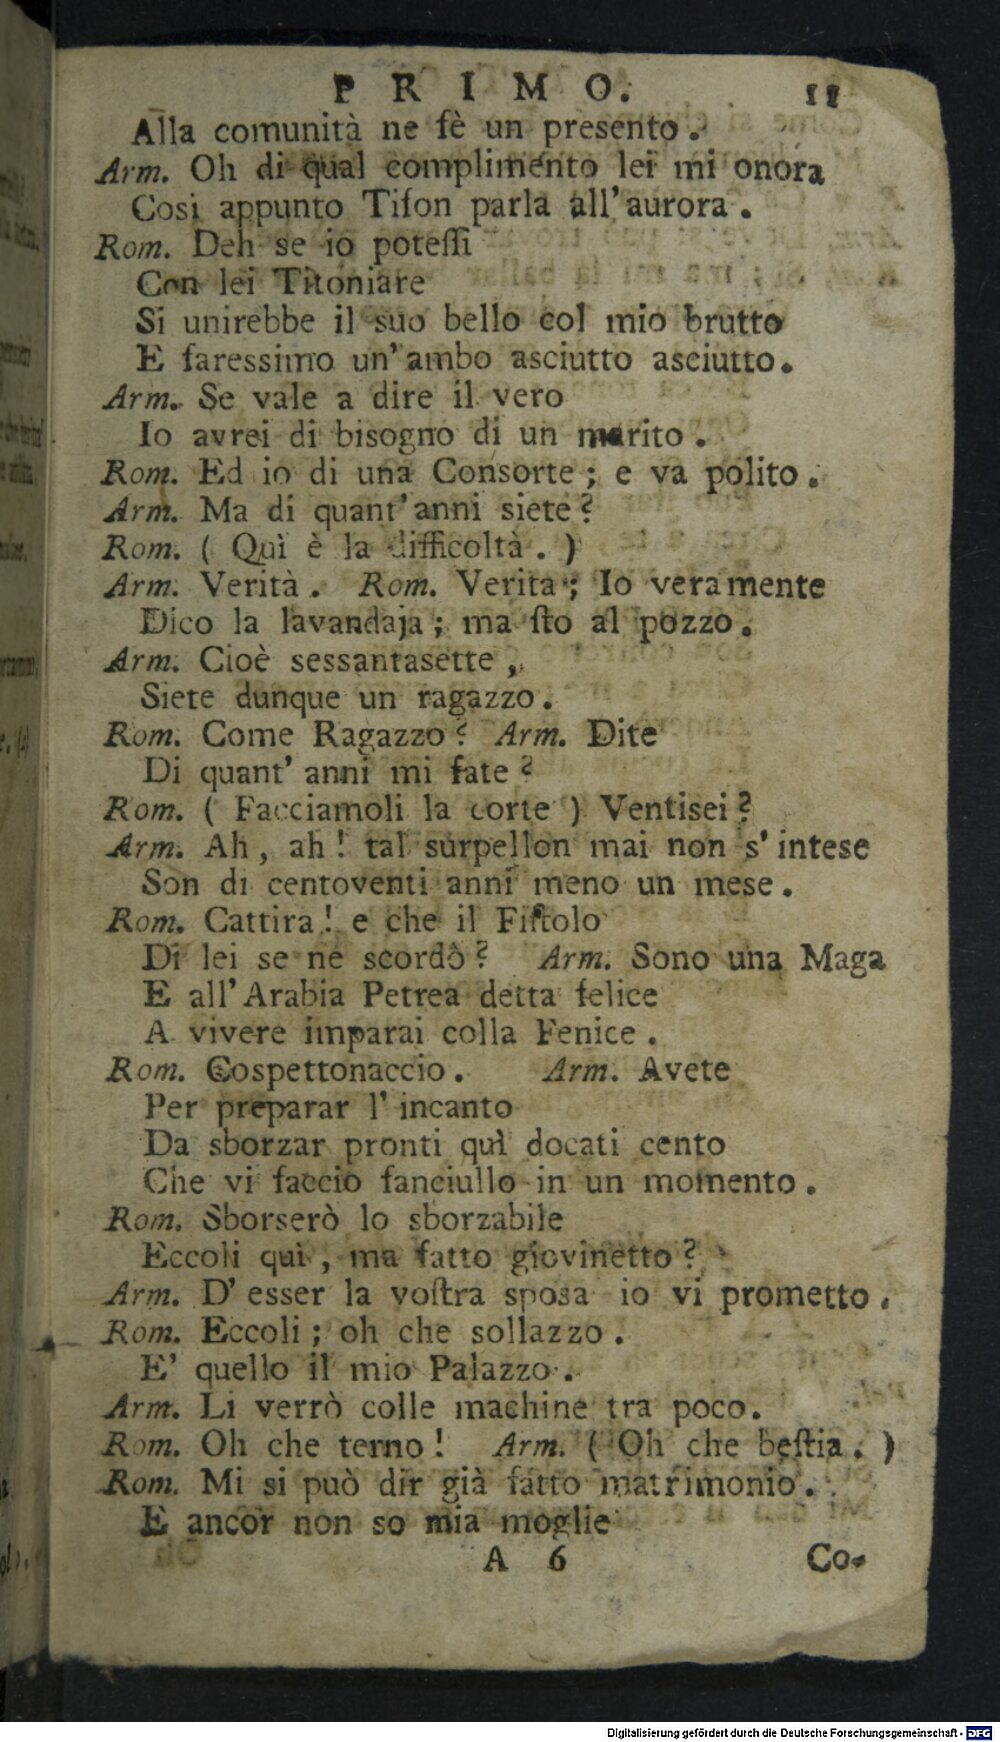 PRIMO. 11
Alla comunità ne fè un presento.
Arm. Oh di qual complimento lei mi onora
Cosi appunto Tiſon parla all'aurora.
Rom. Deh se io poteſſi
Con lei Titoniare
Si unirebbe il suo bello col mio brutto
E faressimo un'ambo asciutto asciutto.
Arm. Se vale a dire il vero
Io avrei di bisogno di un marito.
Rom. Ed io di una Consorte; e va polito.
Arm. Ma di quant'anni siete?
Rom. ( Quì è la difficoltà. )
Arm. Verità. Rom. Verita; Io veramente
Dico la lavandaja; ma ſto al pozzo.
Arm. Cioè sessantasette,
Siete dunque un ragazzo.
Rom. Come Ragazzo? Arm. Dite
Di quant'anni mi fate?
Rom. ( Facciamoli la corte ) Ventisei?
Arm. Ah, ah! tal surpellon mai non s'intese
Son di centoventi anni meno un mese.
Rom. Cattira! e che il Fiſtolo
Di lei se ne scordò? Arm. Sono una Maga
E all'Arabia Petrea detta felice
A vivere imparai colla Fenice.
Rom. Cospettonaccio. Arm. Avete
Per preparar l'incanto
Da sborzar pronti quì docati cento
Che vi faccio fanciullo in un momento.
Rom. Sborserò lo sborzabile
Eccoli quì, ma fatto giovinetto?
Arm. D'esser la voſtra sposa io vi prometto.
Rom. Eccoli; oh che sollazzo.
E' quello il mio Palazzo.
Arm. Li verrò colle machine tra poco.
Rom. Oh che terno! Arm. ( Oh che beſtia. )
Rom. Mi si può dir già fatto matrimonio.
E ancor non so mia moglie
A 6 Co-
Digitalisierung gefördert durch die Deutsche Forschungsgemeinschaft - DFG